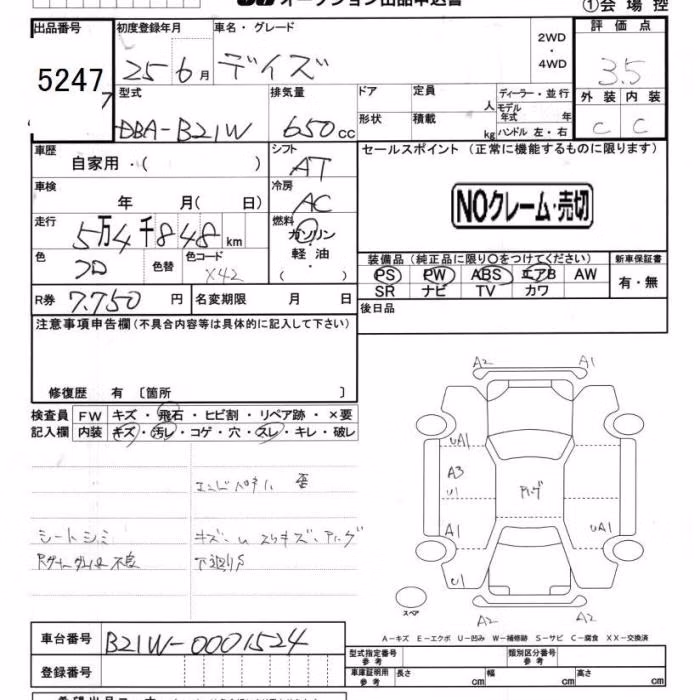 オークション出品申込書
①会場控
出品番号 初度登録年月 車名・グレード 2WD・4WD 評価点
5247 25 6月 デイズ 3.5
型式 排気量 ドア 定員 人 ディーラー・並行 外装 内装
DBA-B21W 650cc 形状 積載 kg モデル年式 年 ハンドル 左・右 C C
車歴 自家用・( ) シフト AT セールスポイント (正常に機能するものに限ります)
車検 年 月( 日) 冷房 AC
NOクレーム・売切
走行 5万4千848km 燃料 ガソリン・軽油 ( )
色 色替 色コード X42
装備品 (純正品に限り○をつけてください) 新車保証書
PS PW ABS エアB AW 有・無
SR ナビ TV カワ
R券 7.750円 名変期限 月 日
後日品
注意事項申告欄(不具合内容等は具体的に記入して下さい)
修復歴 有 〔箇所 〕
検査員 FW キズ・飛石・ヒビ割・リペア跡・×要
記入欄 内装 キズ・汚レ・コゲ・穴・スレ・キレ・破レ
A2 A1
UA1
A3
U1
A1 UA1
U1
A2 A2
スペア
シートシミ
下廻りS
A-キズ E-エクボ U-凹み W-補修跡 S-サビ C-腐食 XX-交換済
車台番号 B21W-0001524
型式指定番号 参考 類別区分番号 参考
登録番号
車庫証明用 参考 長さ cm 幅 cm 高さ cm